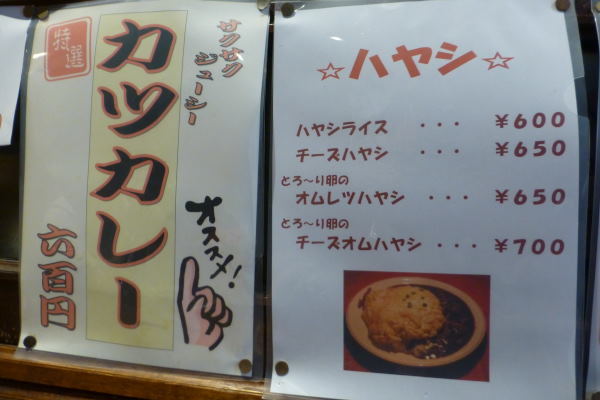 特選
サクサク
ジューシー
カツカレー
オススメ!
六百円
☆ハヤシ☆
ハヤシライス ・・・ ¥600
チーズハヤシ ・・・ ¥650
とろ〜り卵の
オムレツハヤシ ・・・ ¥650
とろ〜り卵の
チーズオムハヤシ ・・・ ¥700